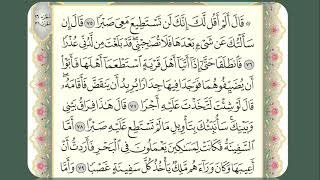 قَالَ أَلَمْ أَقُل لَّكَ إِنَّكَ لَن تَسْتَطِيعَ مَعِىَ صَبْرًا ٧٥ قَالَ إِن
سَأَلْتُكَ عَن شَىْءٍۭ بَعْدَهَا فَلَا تُصَٰحِبْنِى قَدْ بَلَغْتَ مِن لَّدُنِّى عُذْرًا
٧٦ فَٱنطَلَقَا حَتَّىٰٓ إِذَآ أَتَيَآ أَهْلَ قَرْيَةٍ ٱسْتَطْعَمَآ أَهْلَهَا فَأَبَوْا۟
أَن يُضَيِّفُوهُمَا فَوَجَدَا فِيهَا جِدَارًا يُرِيدُ أَن يَنقَضَّ فَأَقَامَهُۥ
قَالَ لَوْ شِئْتَ لَتَّخَذْتَ عَلَيْهِ أَجْرًا ٧٧ قَالَ هَٰذَا فِرَاقُ بَيْنِى
وَبَيْنِكَ سَأُنَبِّئُكَ بِتَأْوِيلِ مَا لَمْ تَسْتَطِع عَّلَيْهِ صَبْرًا ٧٨ أَمَّا
ٱلسَّفِينَةُ فَكَانَتْ لِمَسَٰكِينَ يَعْمَلُونَ فِى ٱلْبَحْرِ فَأَرَدتُّ أَنْ
أَعِيبَهَا وَكَانَ وَرَآءَهُم مَّلِكٌ يَأْخُذُ كُلَّ سَفِينَةٍ غَصْبًا ٧٩ وَأَمَّا